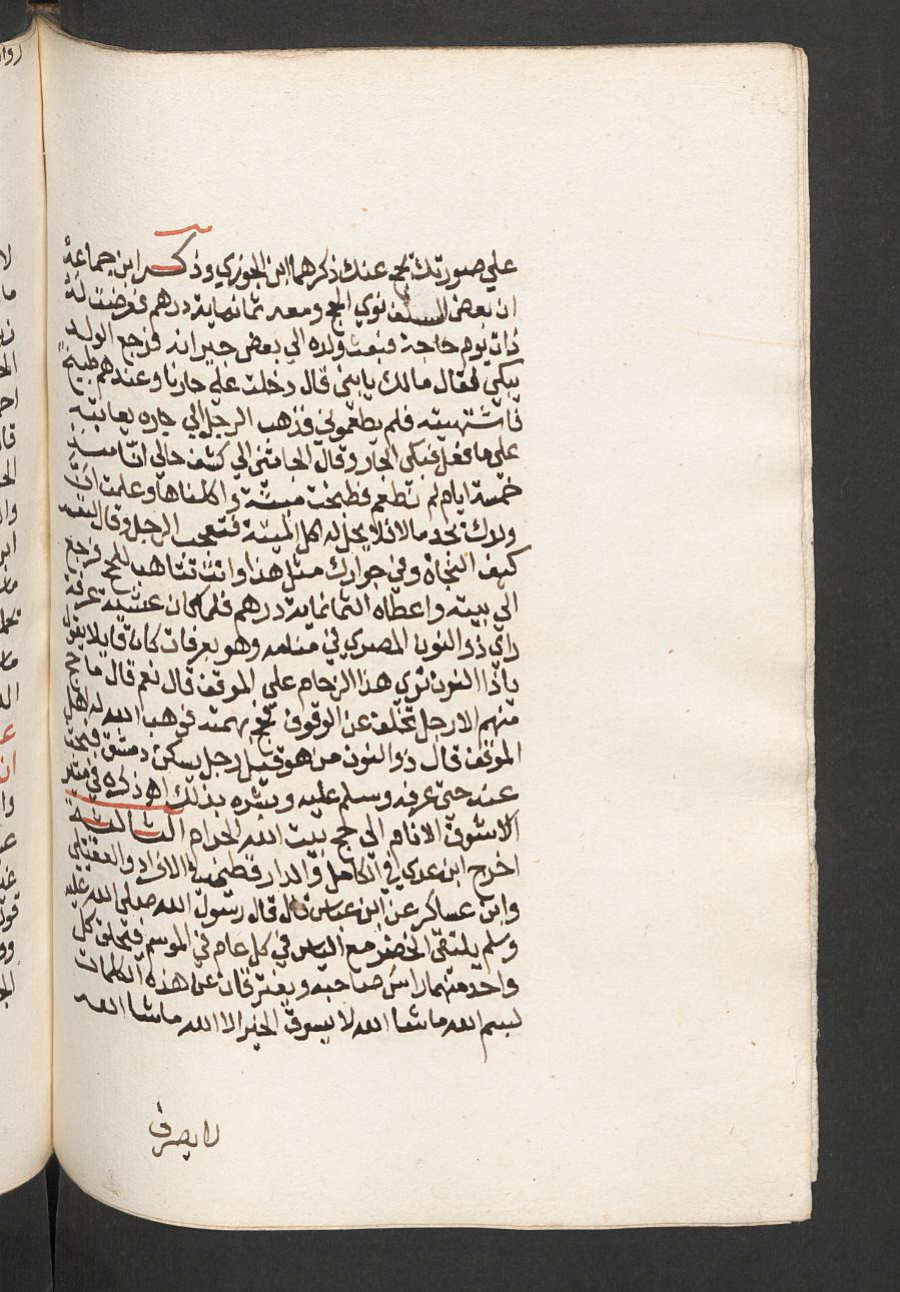 علي صورتك يحج عنك ذكرهما ابن الجوزي وذكر ابن جماعة
ان بعض السلف نوي الحج ومعه ثمانماية درهم فعرضت له
ذات يوم حاجة فبعث ولده الي بعض جيرانه فرجع الولد
يبكي فقال مالك يا بني قال دخلت علي جارنا وعندهم طبيخ
فاشتهيته فلم يطعموني فذهب الرجل الي جاره يعاتبه
علي ما فعل فبكي الجار وقال الجاتني الي كشف حالي انا منذ
خمسة ايام لم نطعم فطبخت ميتة واكلناها وعلمت ان
ولدك يجد مالا فلا يحل له اكل الميتة فتعجب الرجل وقال لنفسه
كيف النجاة وفي جوارك مثل هذا وانت تتاهب للحج فرجع
الي بيته واعطاه الثمانماية درهم فلما كان عشية عرفة
راي ذو النون المصري في منامه وهو بعرفات كان قايلا يقول
يا ذا النون تري هذا الزحام علي الموقف قال نعم قال ما حج
منهم الا رجل تخلف عن الوقوف فحج بهمته فوهب الله له اهل
الموقف قال ذو النون من هو قيل رجل يسكن دمشق فبحث
عنه حتي عرفه وسلم عليه وبشره بذلك اه ذكره في مثير
الاشوق الانام الي حج بيت الله الحرام الثالثة
اخرج ابن عدي في الكامل والدار قطني في الافراد والعقيلي
وابن عساكر عن ابن عباس قال قال رسول الله صلي الله عليه
وسلم يلتقي الخضر مع الياس في كل عام في الموسم فيحلق كل
واحد منهما راس صاحبه ويفترقان عن هذه الكلمات
بسم الله ماشا الله لا يسوق الخير الا الله ماشا الله
لا يصرف